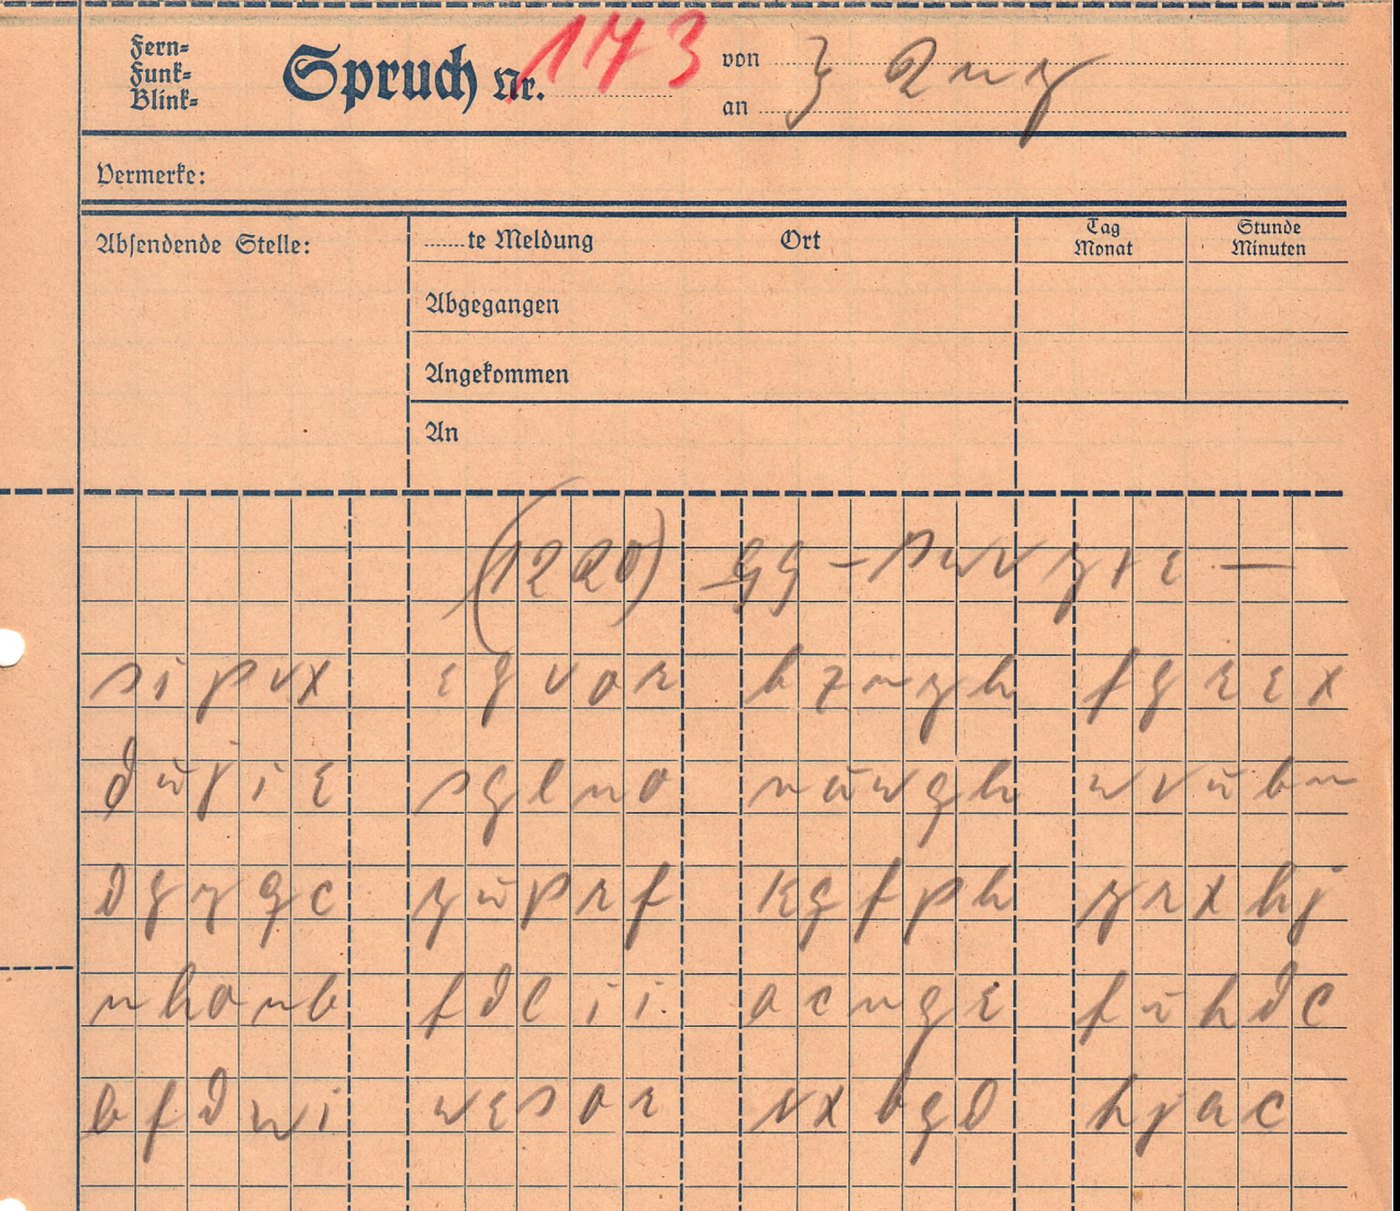 Fern=
Funk=
Blink=
Spruch Nr. 173
von
an
Vermerke:
Absendende Stelle:
......te Meldung Ort
Tag
Monat
Stunde
Minuten
Abgegangen
Angekommen
An
(1220)
sipvx egvor hzngh fgrex
düjie sglno nüwgh wvübn
dgygc züprf kgfph yrxhj
nhonb fdlii acnge fühdc
bfdwi wesor vxogd hjac